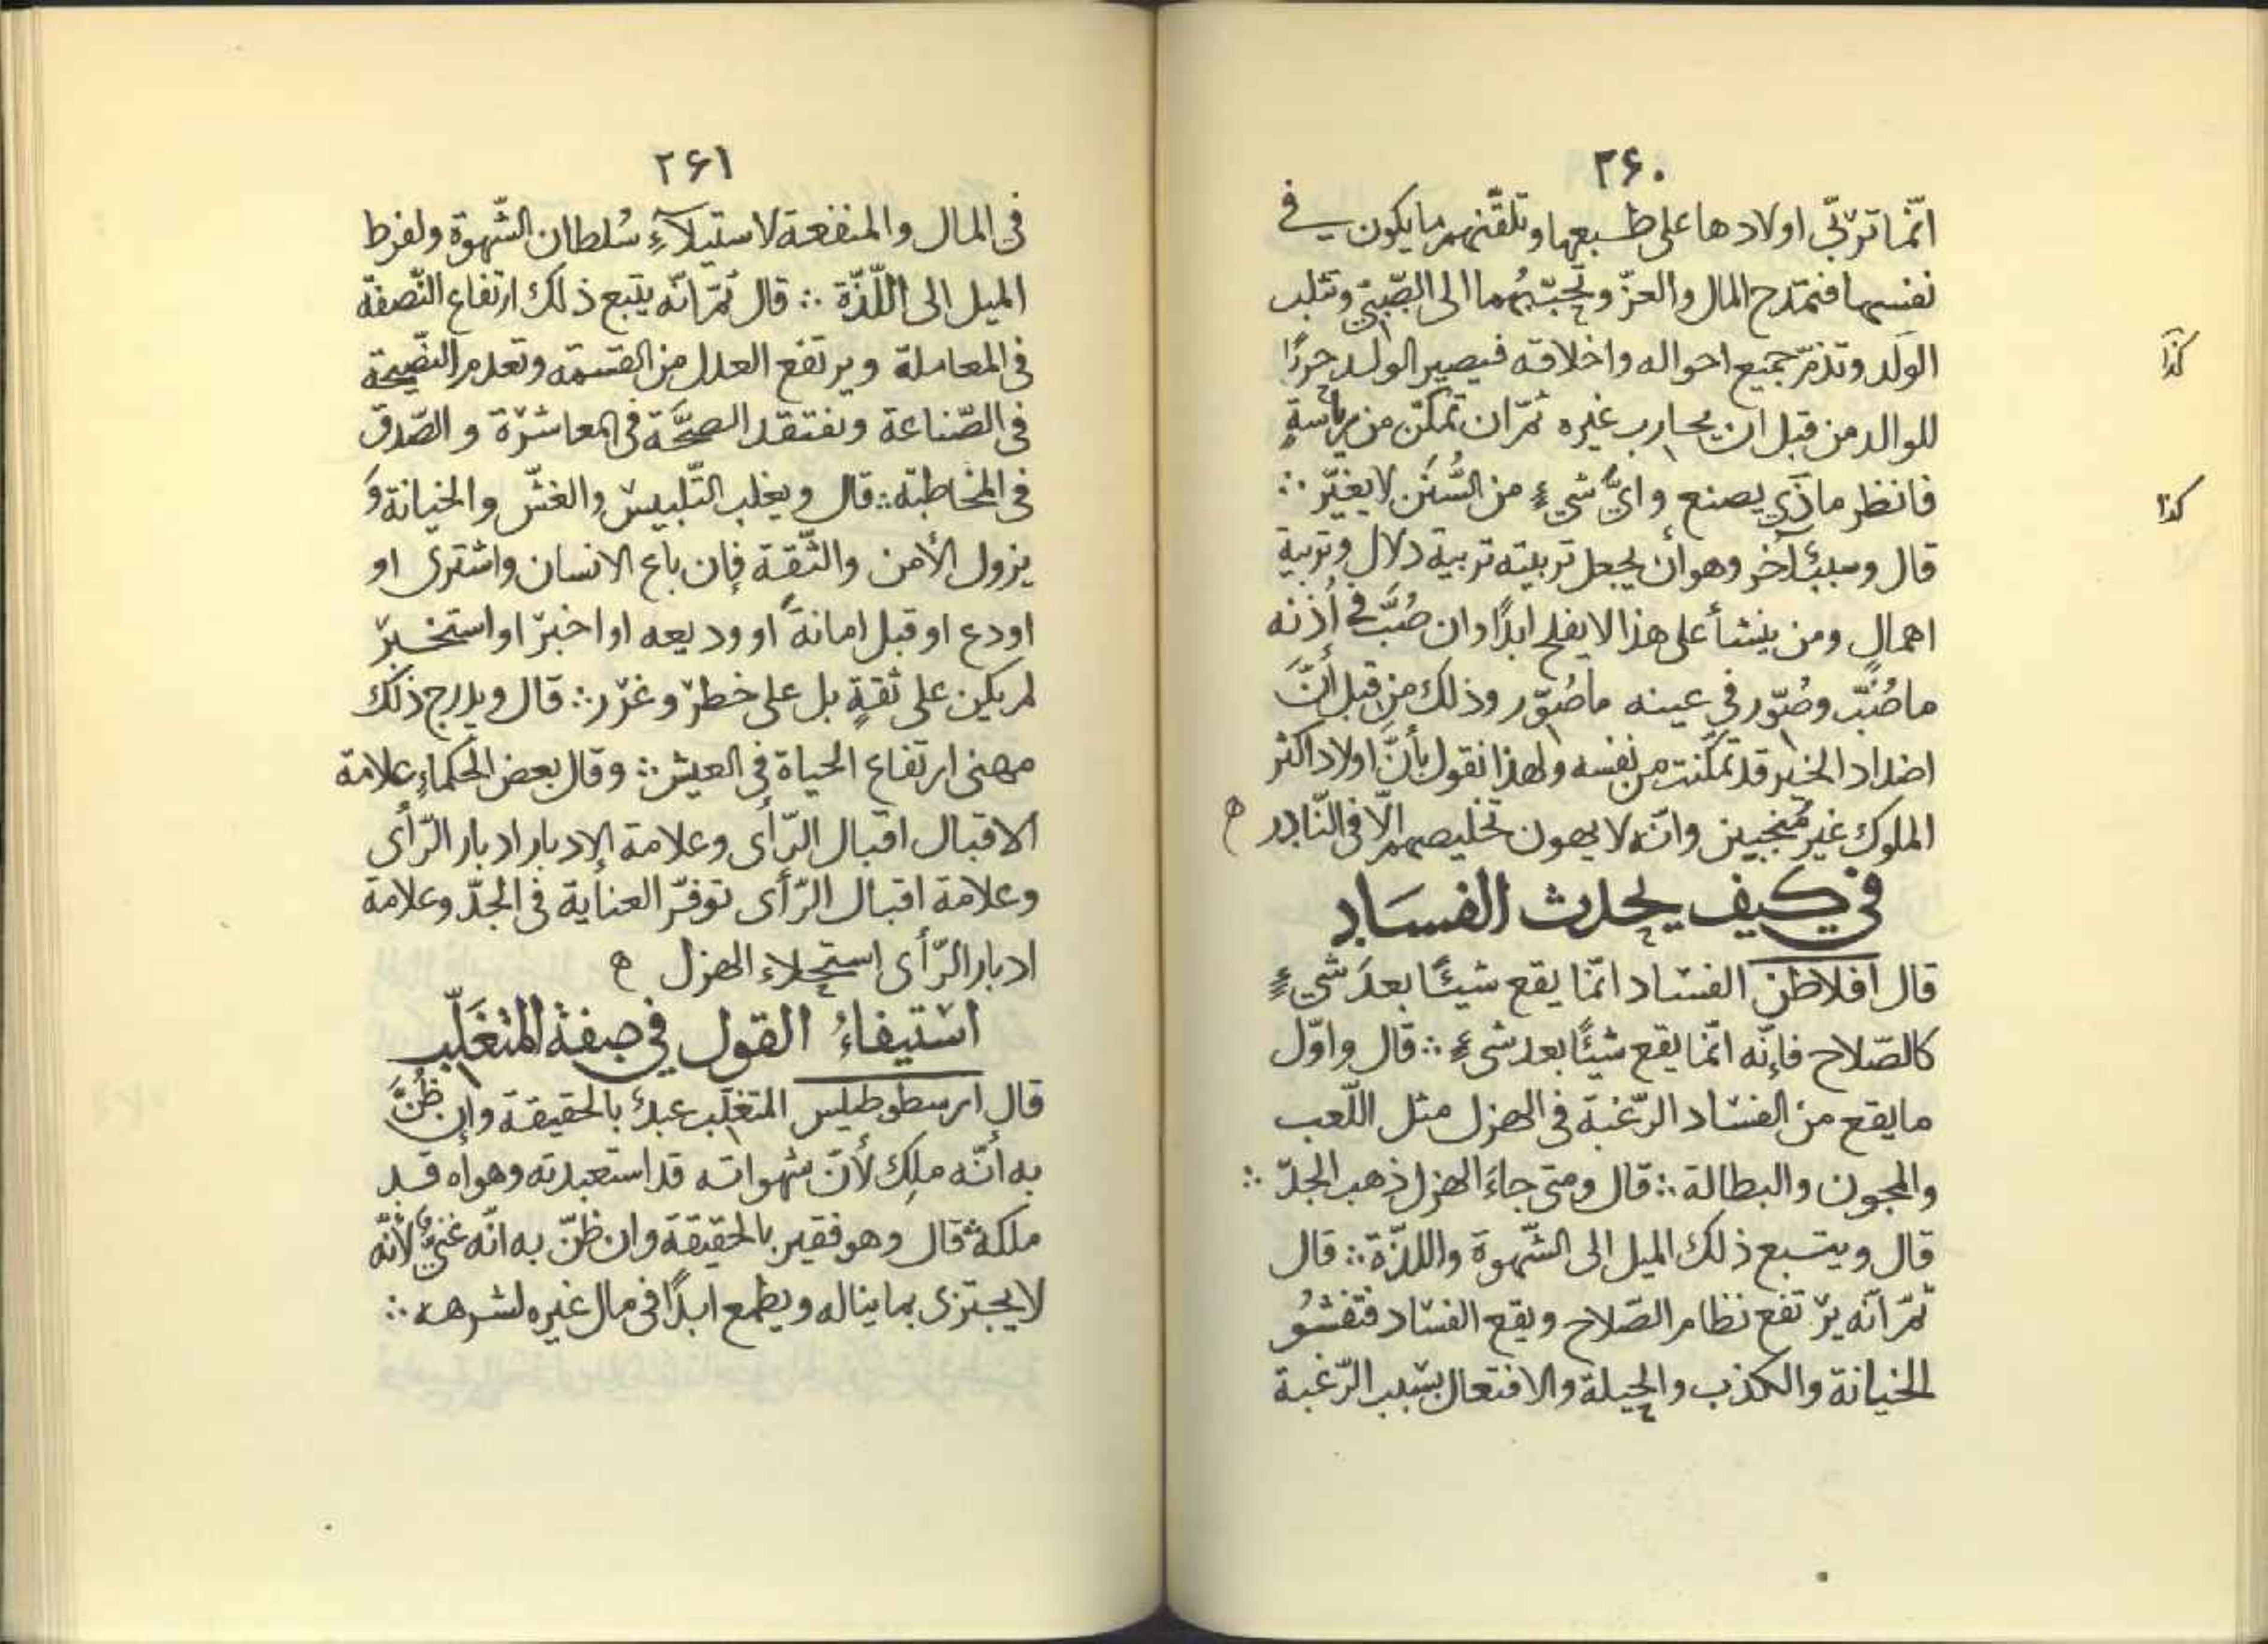 ۲۶۰
انّما تربّي اولادها على طبعها وتلقّنهم ما يكون في
نفسها فتمتدح المال والعزّ وتحبّبهُما الى الصّبيّ وتثلب
الوَلد وتذمّ جميع احواله واخلاقه فيصير الولد حربًا
كذا
للوالد من قبل ان يحارب غيره ثمّ ان تمكّن من رياسةٍ
فانظر ماذَي يصنع وايُّ شيءٍ من السُّنَن لا يغيّر ∴
كذا
قال وسببٌ آخر وهو أن يجعل تربيته تربية دلال وتربية
اهمال ومن ينشأ على هذا لا يفلح ابدًا وان صُبَّ في أُذنه
ما صُبّ وصُوّر في عينه ما صُوّر وذلك من قبل أنَّ
اضداد الخير قد تمكّنت من نفسه ولهذا نقول بأنَّ اولاد اكثر
الملوك غير مُنجبين وانّه لا يهون تخليصهم الّا في النّادر ه
في كيف يحدث الفسَاد
قال افلاطن الفسَاد انّما يقع شيئًا بعدَ شيءٍ
كالصّلاح فإنّه انّما يقع شيئًا بعد شيءٍ ∴ قال واوّل
ما يقع من الفسَاد الرّغبة في الهزل مثل اللّعب
والمجون والبطالة ∴ قال ومتى جاءَ الهزل ذهب الجدّ ∴
قال ويتبع ذلك الميل الى الشّهوة واللذّة ∴ قال
ثمّ انّه يرتفع نظام الصّلاح ويقع الفسَاد فتفشُو
الخيانة والكذب والحيلة والافتعال بسبب الرّغبة
۲۶۱
في المال والمنفعة لاستيلآءِ سُلطان الشّهوة ولفرط
الميل الى اللّذّة ∴ قال ثمّ انّه يتبع ذلك ارتفاع النّصفة
في المعاملة ويرتفع العدل من القسمة وتعدم النّصيحة
في الصّناعة ونفتقد الصحَّة في المعاشرة والصّدق
في المخاطبة ∴ قال ويغلب التّلبيس والغشّ والخيانة وَ
يزول الأمن والثّقة فإن باع الانسان واشترى او
اودع او قبل امانةً او وديعه او اخبر او استخبر
لم يكن على ثقةٍ بل على خطر وغرر ∴ قال ويدرج ذلك
مهنى ارتفاع الحياة في العيش ∴ وقال بعض الحكماءِ علامة
الاقبال اقبال الرّأى وعلامة الإدبار ادبار الرّأى
وعلامة اقبال الرّأى توفّر العناية في الجدّ وعلامة
ادبار الرّأى استحلاء الهزل ه
استيفاءُ القول في صفة المتغَلّب
قال ارسطوطيلس المتغلّب عبدٌ بالحقيقة وإن ظُنَّ
به أنّه ملِك لأنّ شهواته قد استعبدته وهواه قد
ملكه قال وهو فقير بالحقيقة وان ظنّ به انّه غنيٌّ لأنّه
لا يجتزى بما يناله ويطمع ابدًا في مال غيره لشرهه ∴